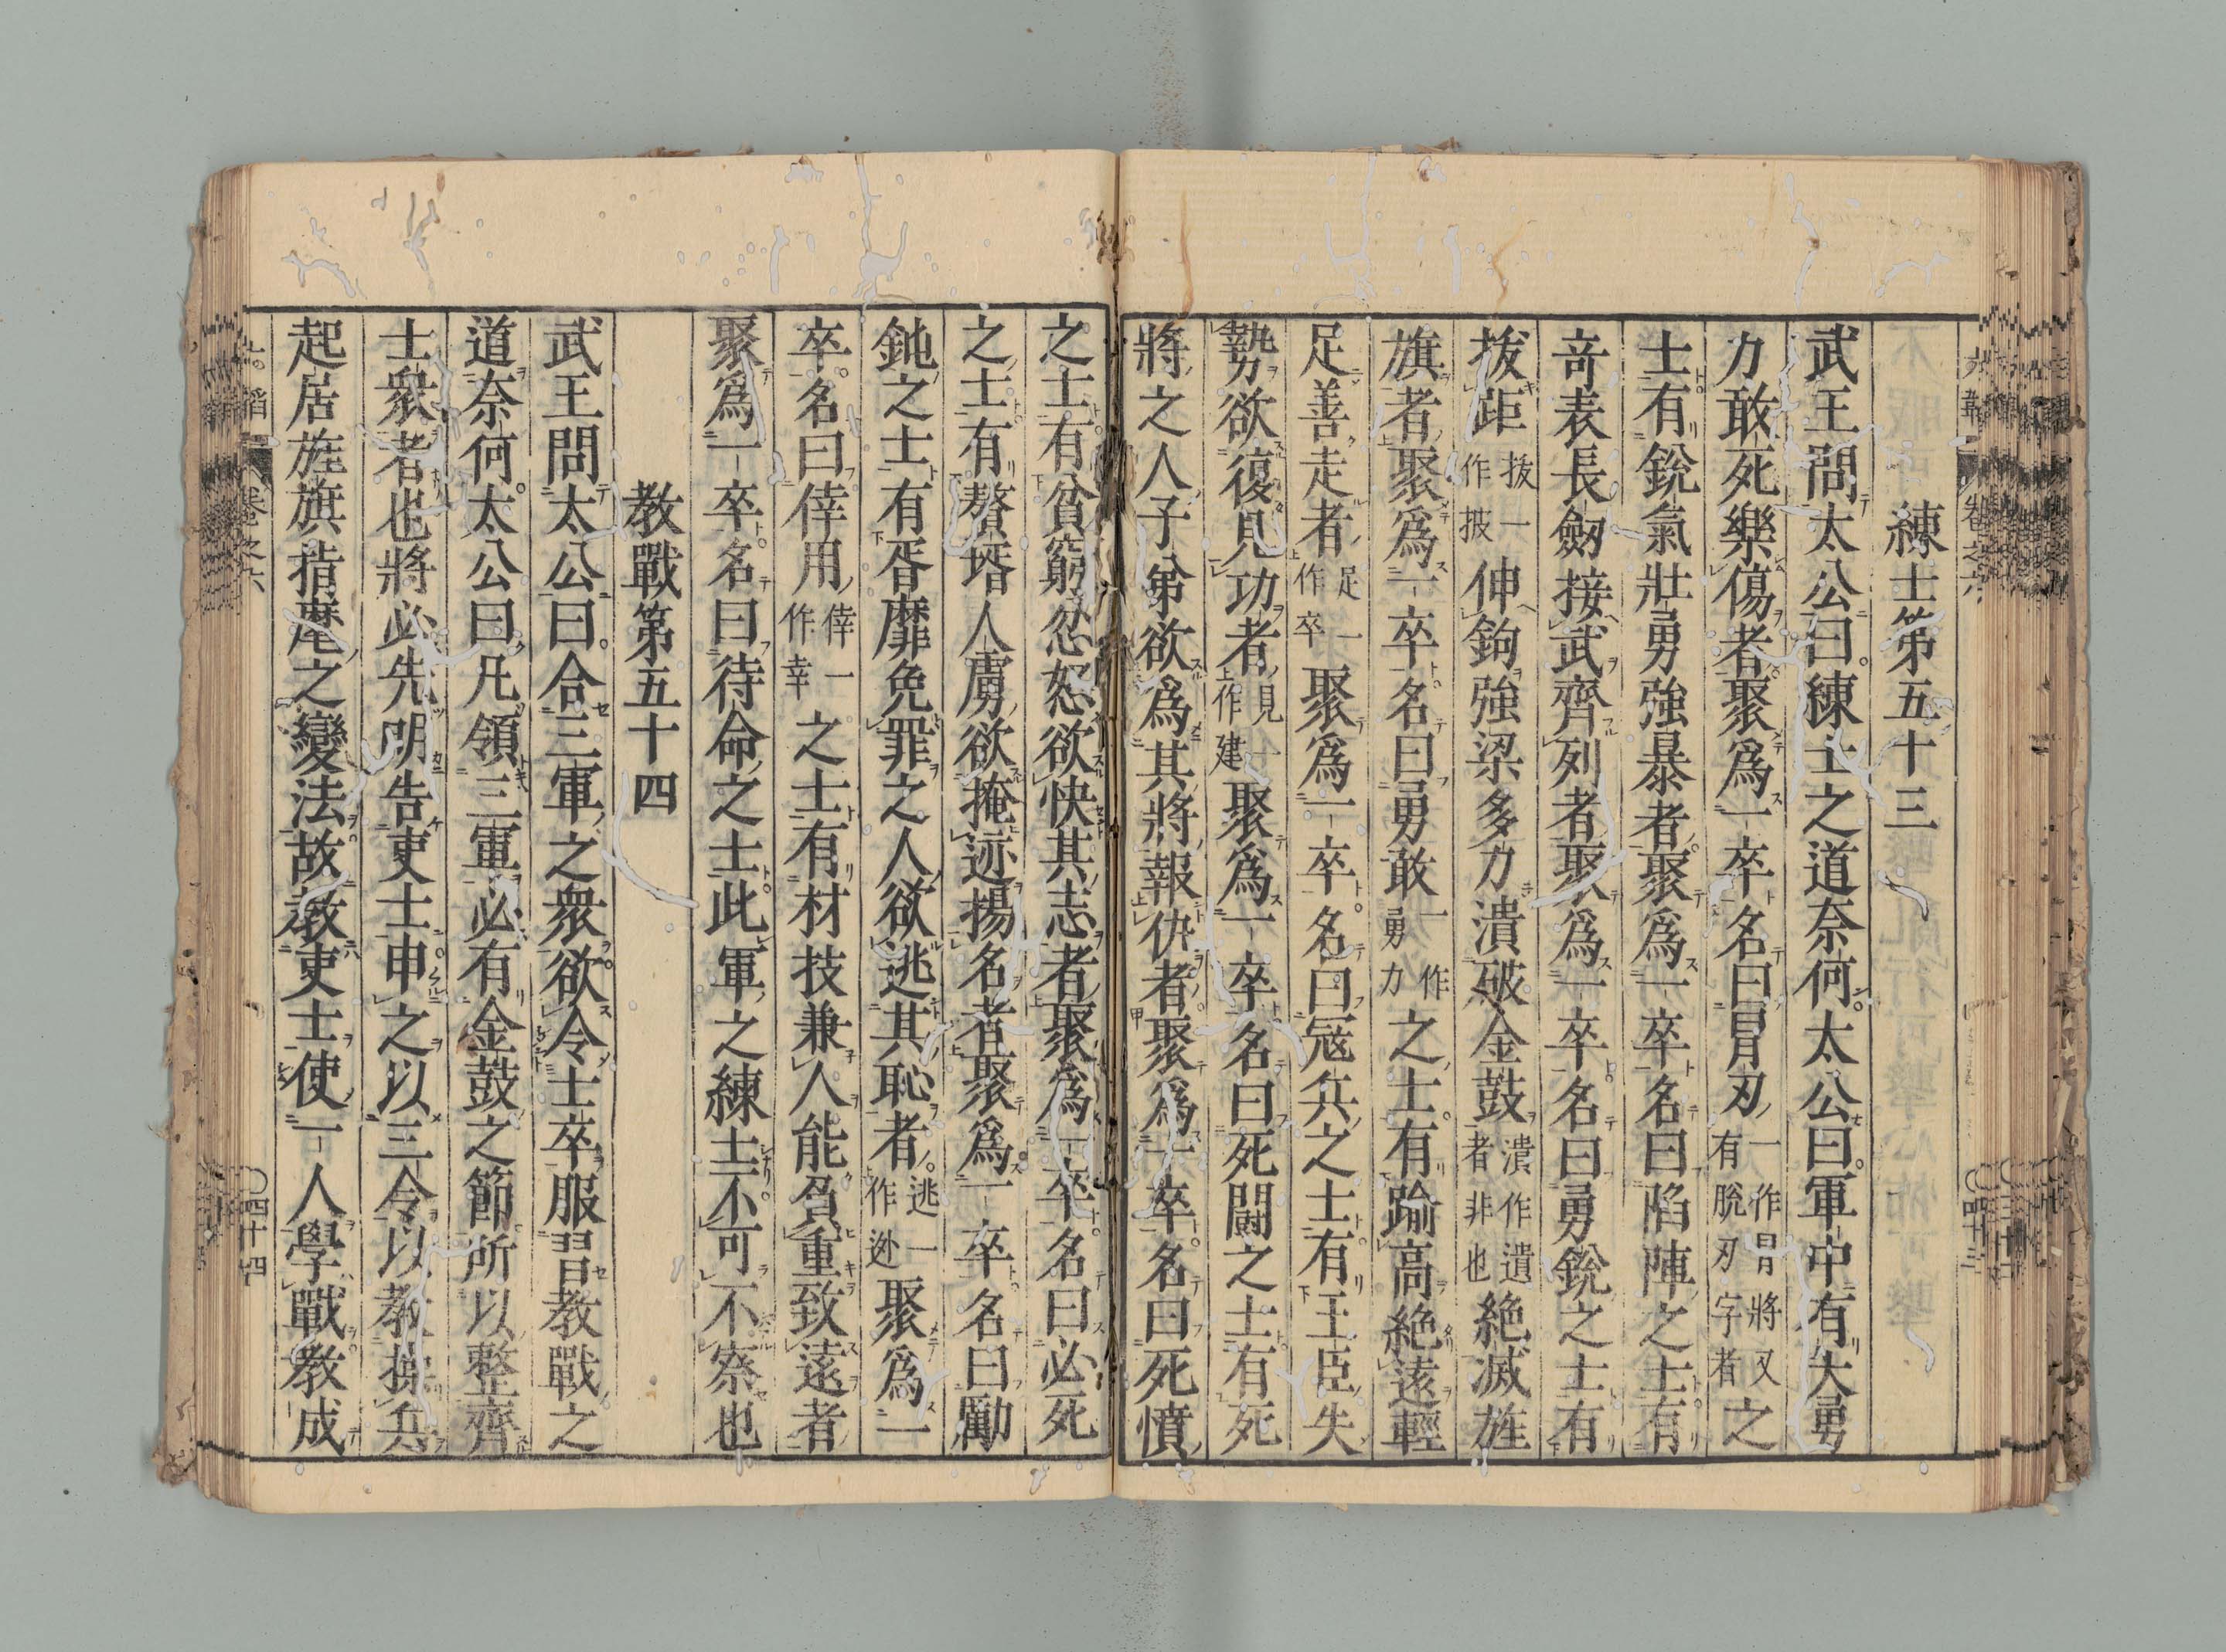 練士第五十三
武王問太公曰練士之道奈何太公曰軍中有大勇
力敢死樂傷者聚爲一卒名曰冒刃一作冒將又有脫刃字者之
士有銳氣壯勇強暴者聚爲一卒名曰陷陣之士有
竒表長劒接武齊列者聚爲一卒名曰勇銳之士有
拔距拔一作披伸鉤強梁多力潰破金鼓潰作遺者非也絶滅旌
旗者聚爲一卒名曰勇敢一作勇力之士有踰高絶遠輕
足善走者足一作卒聚爲一卒名曰冦兵之士有王臣失
勢欲復見功者見一作建聚爲一卒名曰死鬬之士有死
將之人子弟欲爲其將報仇者聚爲一卒名曰死憤
之士有貧窮忿怒欲快其志者聚爲一卒名曰必死
之士有贅壻人虜欲掩迹揚名者聚爲一卒名曰勵
鈍之士有胥靡免罪之人欲逃其恥者逃一作迯聚爲一
卒名曰倖用倖一作幸之士有材技兼人能負重致遠者
聚爲一卒名曰待命之士此軍之練士不可不察也
教戰第五十四
武王問太公曰合三軍之衆欲令士卒服習教戰之
道奈何太公曰凡領三軍必有金鼓之節所以整齊
士衆者也將必先明告吏士申之以三令以教操兵
起居旌旗指麾之變法故教吏士使一人學戰教成
六韜
卷之六
四十三
卷之六
四十四